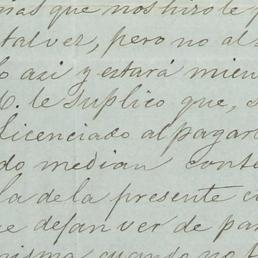 que nos hizo le
tal vez, pero no al
lo asi y estará mien
le suplico que,
licenciado al pagaré
do median conte
la de la presente c
e dejan ver de pa
misma cuando no